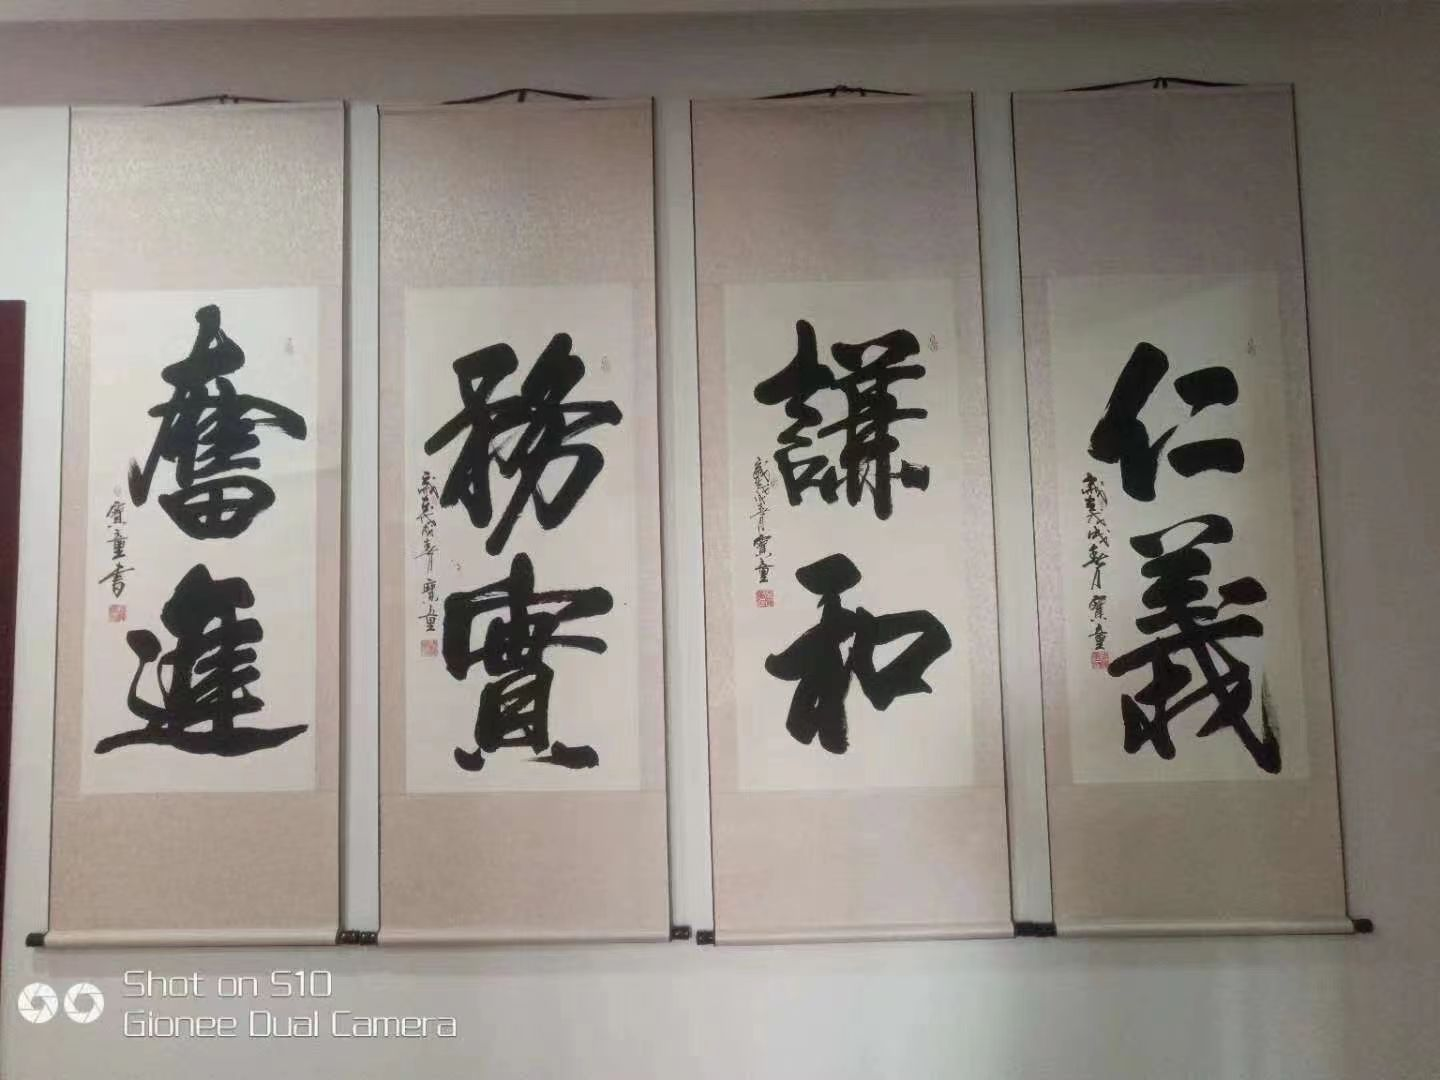 仁義
歲在戊戌春月 寶童
謙和
歲在戊戌春月 寶童
務實
歲在戊戌春月 寶童
奮進
寶童書
Shot on S10
Gionee Dual Camera